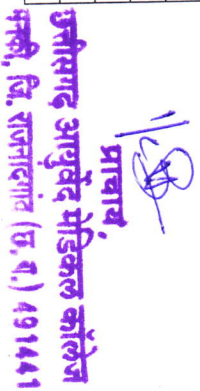 प्राचार्य
छत्तीसगढ़ आयुर्वेद मेडिकल कॉलेज
मनकी, जि. राजनांदगांव (छ.ग.) 491441